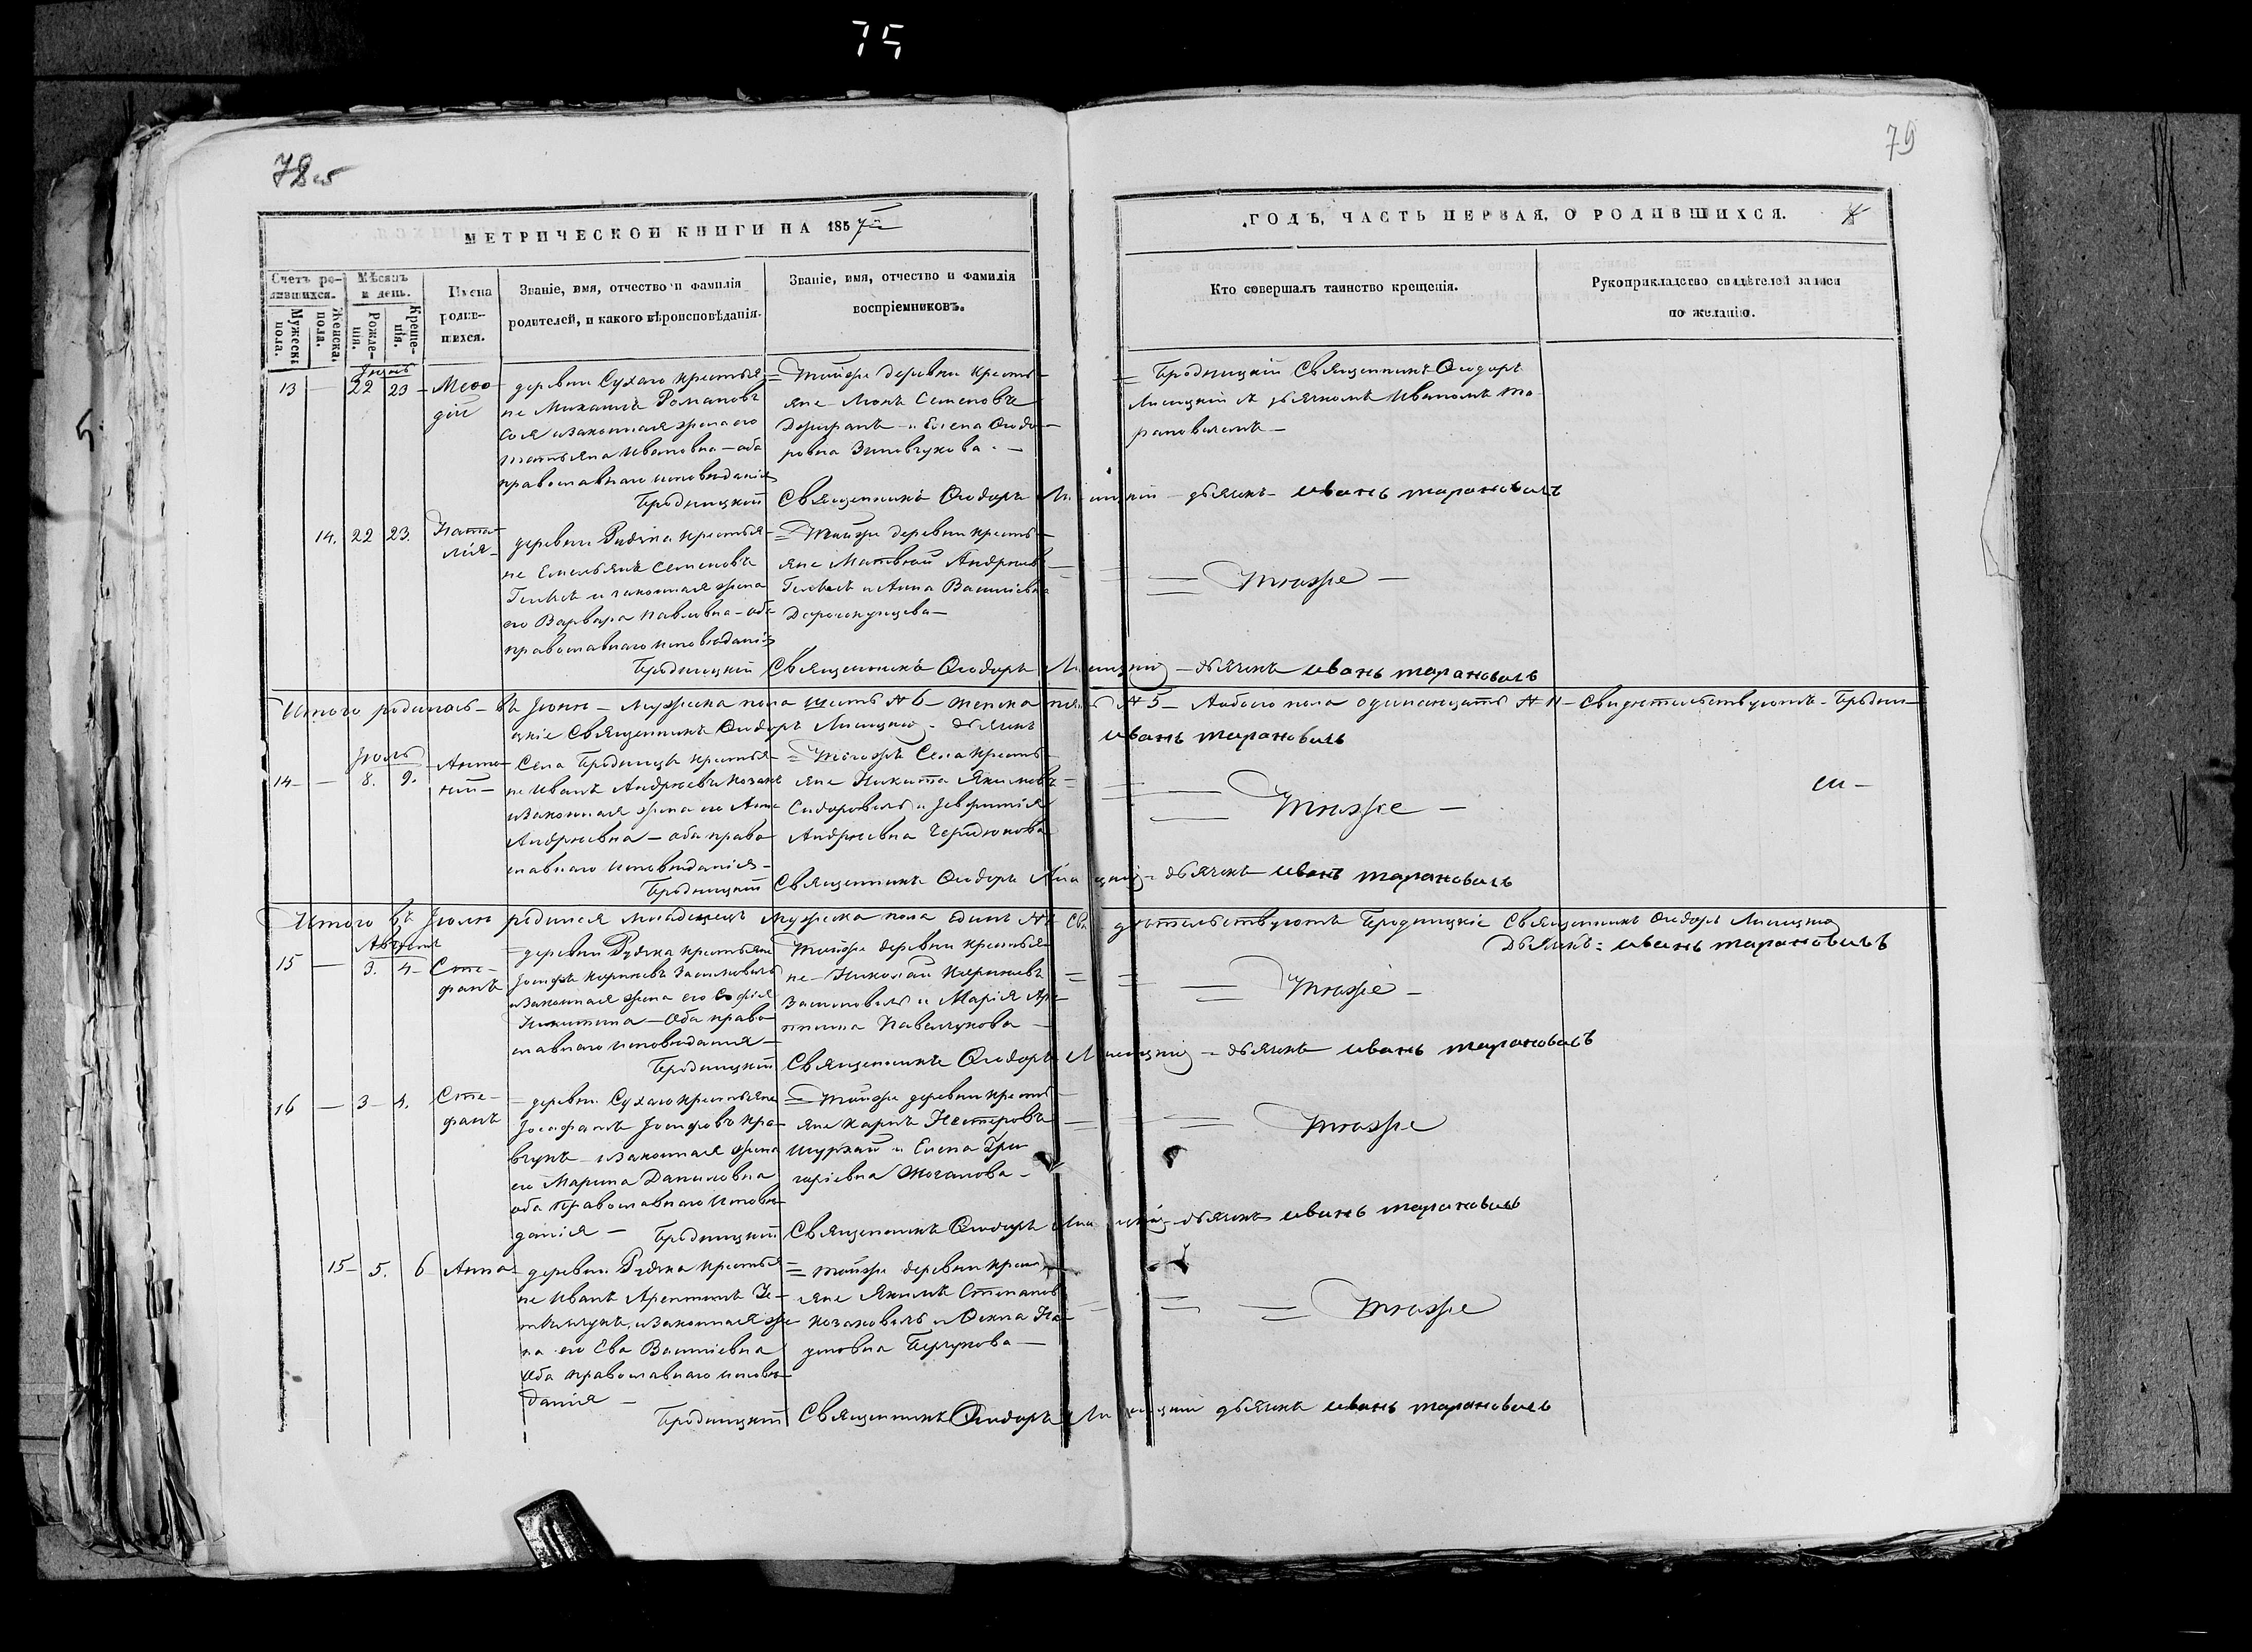 75
78 об
79
МЕТРИЧЕСКОЙ КНИГИ НА 1857й
ГОДЪ, ЧАСТЬ ПЕРВАЯ, О РОДИВШИХСЯ.
Счетъ родившихся.
Мужеска пола.
Женска. пола.
Мѣсяцъ и день.
Рожденія.
Крещенія.
Имена родившихся.
Званіе, имя, отчество и фамилія
родителей, и какого вѣроисповѣданія.
Званіе, имя, отчество и фамилія
воспріемниковъ.
Кто совершалъ таинство крещенія.
Рукоприкладство свидѣтелей записи
по желанію.
Іюнь
13 — 22 23 Меѳодій
деревни Сухаго крестья-
не Михаилъ Романовъ
законная жена его
Татьяна Ивановна — оба
православнаго исповѣданія
= Тойже деревни кресть-
яне Семеновъ
и Елена Ѳеодо-
ровна Зиновчукова. —
= Бродницкій Священникъ Ѳеодоръ
Лисицкій съ дьячкомъ Иваномъ Та-
рановичемъ —
Бродницкій Священникъ Ѳеодоръ Лисицкій дьячекъ Иванъ Тарановичъ
14. 22 23. Ната-
лія —
деревни Рудка крестья-
не Емельянъ Семеновъ
и законная жена
его Варвара Павловна — оба
православнаго исповѣданія
= Тойже деревни кресть-
яне Матвѣй Андреевъ
и Анна Васильевна
= Тотже —
Бродницкій Священникъ Ѳеодоръ Лисицкій — дьячекъ Иванъ Тарановичъ
Итого родилось въ Іюнѣ — мужеска пола шесть № 6 — женска пять № 5 — Аобоего пола одинадцать № 11 — свидѣтельствуютъ — Бродни-
цкіе Священникъ Ѳеодоръ Лисицкій — дьячекъ Иванъ Тарановичъ
Іюль
14 — — 8. 9. Анто-
ній —
Села Бродницъ крестья-
не Иванъ Андреевъ
изаконная жена его Анна
Андреевна — оба право-
славнаго исповѣданія —
= Тогоже Села кресть-
яне Никита Якимовъ
Сидоровичъ и Іевфимія
Андреевна
= Тотже —
Бродницкій Священникъ Ѳеодоръ Лисицкій — дьячекъ Иванъ Тарановичъ
Итого въ Іюлѣ родился младенецъ мужеска пола единъ № 1 Свидѣтельствуютъ Бродницкіе Священникъ Ѳеодоръ Лисицкій
Дьячекъ: Иванъ Тарановичъ
Августъ
15 — 3. 4 — Сте-
фанъ
— деревни Рудка крестьяне
Іосифъ
изаконная жена его Софія
Никитина — Оба право-
славнаго исповѣданія —
Тойже деревни крестья-
не — Николай
и Марія
Павелчукова —
= Тотже —
Бродницкій Священникъ Ѳеодоръ Лисицкій — дьячекъ Иванъ Тарановичъ
16 — 3 — 4. Сте-
фанъ
— деревни Сухаго крестьяне
Іосафатъ Іосифовъ Кра-
вчукъ — изаконная жена
его Марина Даниловна
оба Православнаго исповѣ-
данія —
= Тойже деревни кресть-
яне Карпъ Нестеровъ
и Елена Гри-
горіевна
= Тотже
Бродницкій Священникъ Ѳеодоръ Лисицкій — дьячекъ Иванъ Тарановичъ
15 — 5. 6 Анна
деревни Рудка крестья-
не Иванъ
изаконная же-
на его Ева Васильевна
Оба православнаго исповѣ-
данія —
= Тойже деревни кресть-
яне Якимъ Степановъ
Козаковичъ
= Тотже
Бродницкій Священникъ Ѳеодоръ Лисицкій дьячекъ Иванъ Тарановичъ